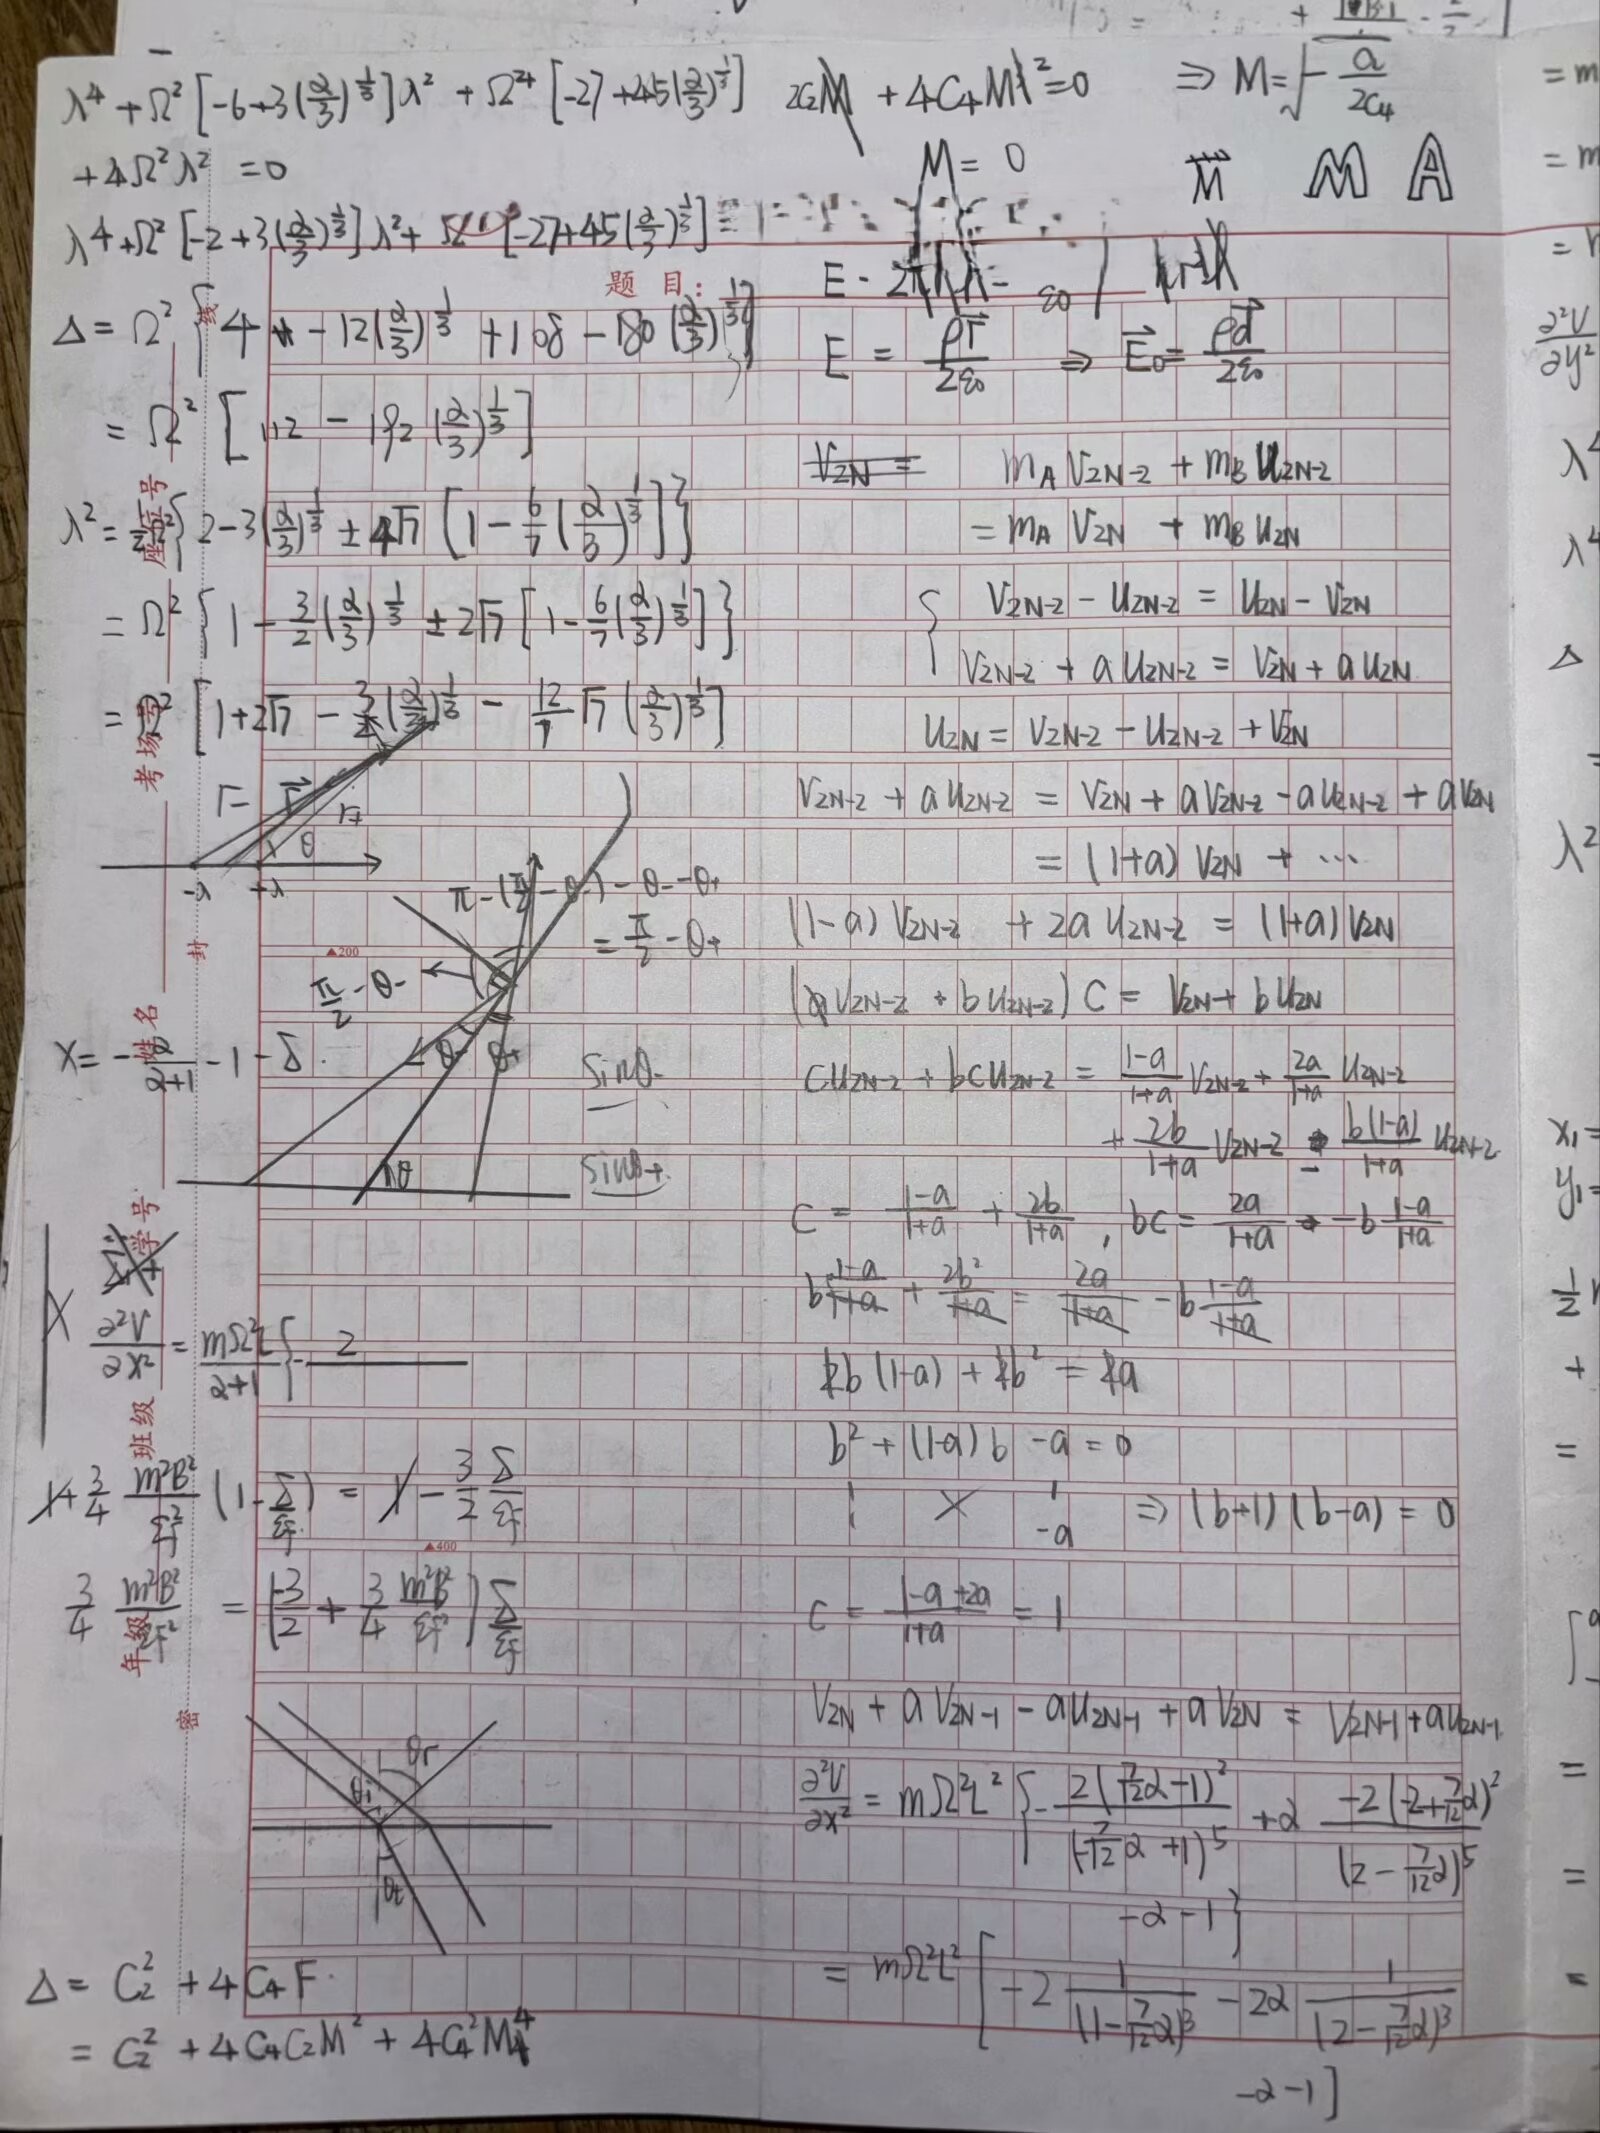 λ⁴ + Ω² [-6+3(α/3)^{1/3}] λ² + Ω⁴ [-27+45(α/3)^{1/3}]
+ 4Ω²λ² = 0
λ⁴ + Ω² [-2+3(α/3)^{1/3}] λ² + [-27+45(α/3)^{1/3}] =
Δ = Ω² { 4 - 12(α/3)^{1/3} + 108 - 180(α/3)^{1/3}
= Ω² [112 - 192 (α/3)^{1/3}]
λ² = { 2 - 3(α/3)^{1/3} ± 4√7 [1 - 6/7 (α/3)^{1/3}] }
= Ω² { 1 - 3/2 (α/3)^{1/3} ± 2√7 [1 - 6/7 (α/3)^{1/3}] }
= Ω² [1+2√7 - 3/2 (α/3)^{1/3} - 12/7 √7 (α/3)^{1/3}]
r- r⃗ r+
θ
-λ +λ
π - (π/2 - θ-) - θ- - θ+
= π/2 - θ+
π/2 - θ-
θ- θ+
sinθ-
sinθ+
θ
x = - α/(α+1) - 1 - δ
∂²V/∂x² = mΩ²l/(α+1) { - 2
1 + 3/4 m²B²/εf² (1 - δ/εf) = 1 - 3/2 δ/εf
3/4 m²B²/εf² = (-3/2 + 3/4 m²B²/εf²) δ/εf
θi θr
θt
Δ = C₂² + 4C₄F
= C₂² + 4C₄C₂M² + 4C₄²M⁴
2C₂M + 4C₄M² = 0 ⇒ M = √(- a/2C₄)
M = 0
M M A
题 目：
E = ρr⃗/2ε₀ ⇒ E⃗₀ = ρd⃗/2ε₀
V2N = mA V2N-2 + mB U2N-2
= mA V2N + mB U2N
{ V2N-2 - U2N-2 = U2N - V2N
V2N-2 + a U2N-2 = V2N + a U2N
U2N = V2N-2 - U2N-2 + V2N
V2N-2 + a U2N-2 = V2N + a V2N-2 - a U2N-2 + a V2N
= (1+a) V2N + ⋯
(1-a) V2N-2 + 2a U2N-2 = (1+a) V2N
(V2N-2 + b U2N-2) C = V2N + b U2N
C U2N-2 + bC U2N-2 = (1-a)/(1+a) V2N-2 + 2a/(1+a) U2N-2
+ 2b/(1+a) V2N-2 - b(1-a)/(1+a) U2N-2
C = (1-a)/(1+a) + 2b/(1+a) , bC = 2a/(1+a) - b (1-a)/(1+a)
b (1-a)/(1+a) + 2b²/(1+a) = 2a/(1+a) - b (1-a)/(1+a)
2b(1-a) + 2b² = 2a
b² + (1-a) b - a = 0
1 1
1 -a ⇒ (b+1)(b-a) = 0
C = (1-a+2a)/(1+a) = 1
V2N + a V2N-1 - a U2N-1 + a V2N = V2N-1 + a U2N-1
∂²V/∂x² = mΩ²l² { - 2(7/12 α - 1)²/(-7/12 α + 1)⁵ + α -2(-2+7/12 α)²/(2 - 7/12 α)⁵
-α-1}
= mΩ²l² [ -2 1/(1 - 7/12 α)³ - 2α 1/(2 - 7/12 α)³
-α-1]
线
座位号
考场号
封
姓名
学号
班级
年级
密
▲200
▲400
= m
= m
∂²V/∂y²
λ⁴
λ⁴
Δ
=
λ²
x₁=
y₁=
1/2
+
=
=
=
=